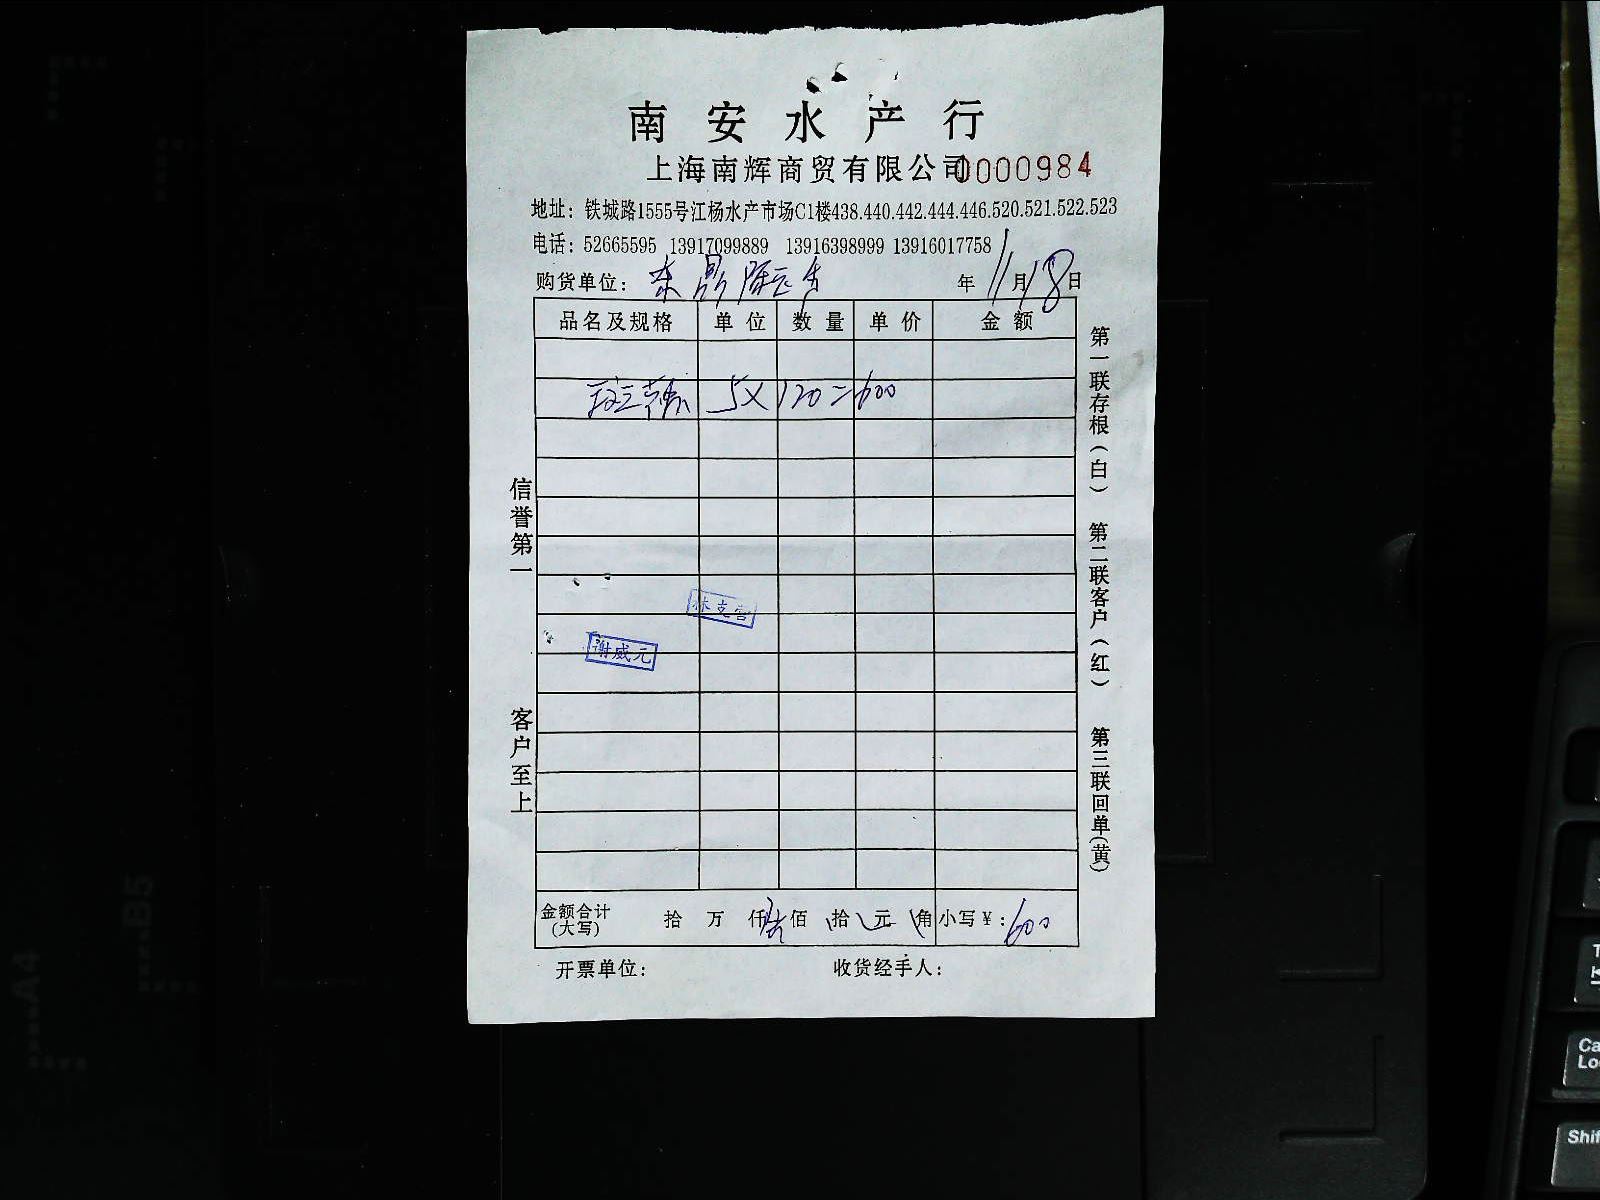 南安水产行
上海南辉商贸有限公司 0000984
地址：铁城路1555号江杨水产市场C1楼438.440.442.444.446.520.521.522.523
电话：52665595 13917099889 13916398999 13916017758
购货单位： 年 11 月 18 日
品名及规格 单位 数量 单价 金额
5X120=600
信誉第一
客户至上
林克营
谢威元
第一联存根（白）
第二联客户（红）
第三联回单（黄）
金额合计（大写） 拾 万 仟 陆 佰 拾 元 角 小写￥：600
开票单位： 收货经手人：
A4
B5
Shif